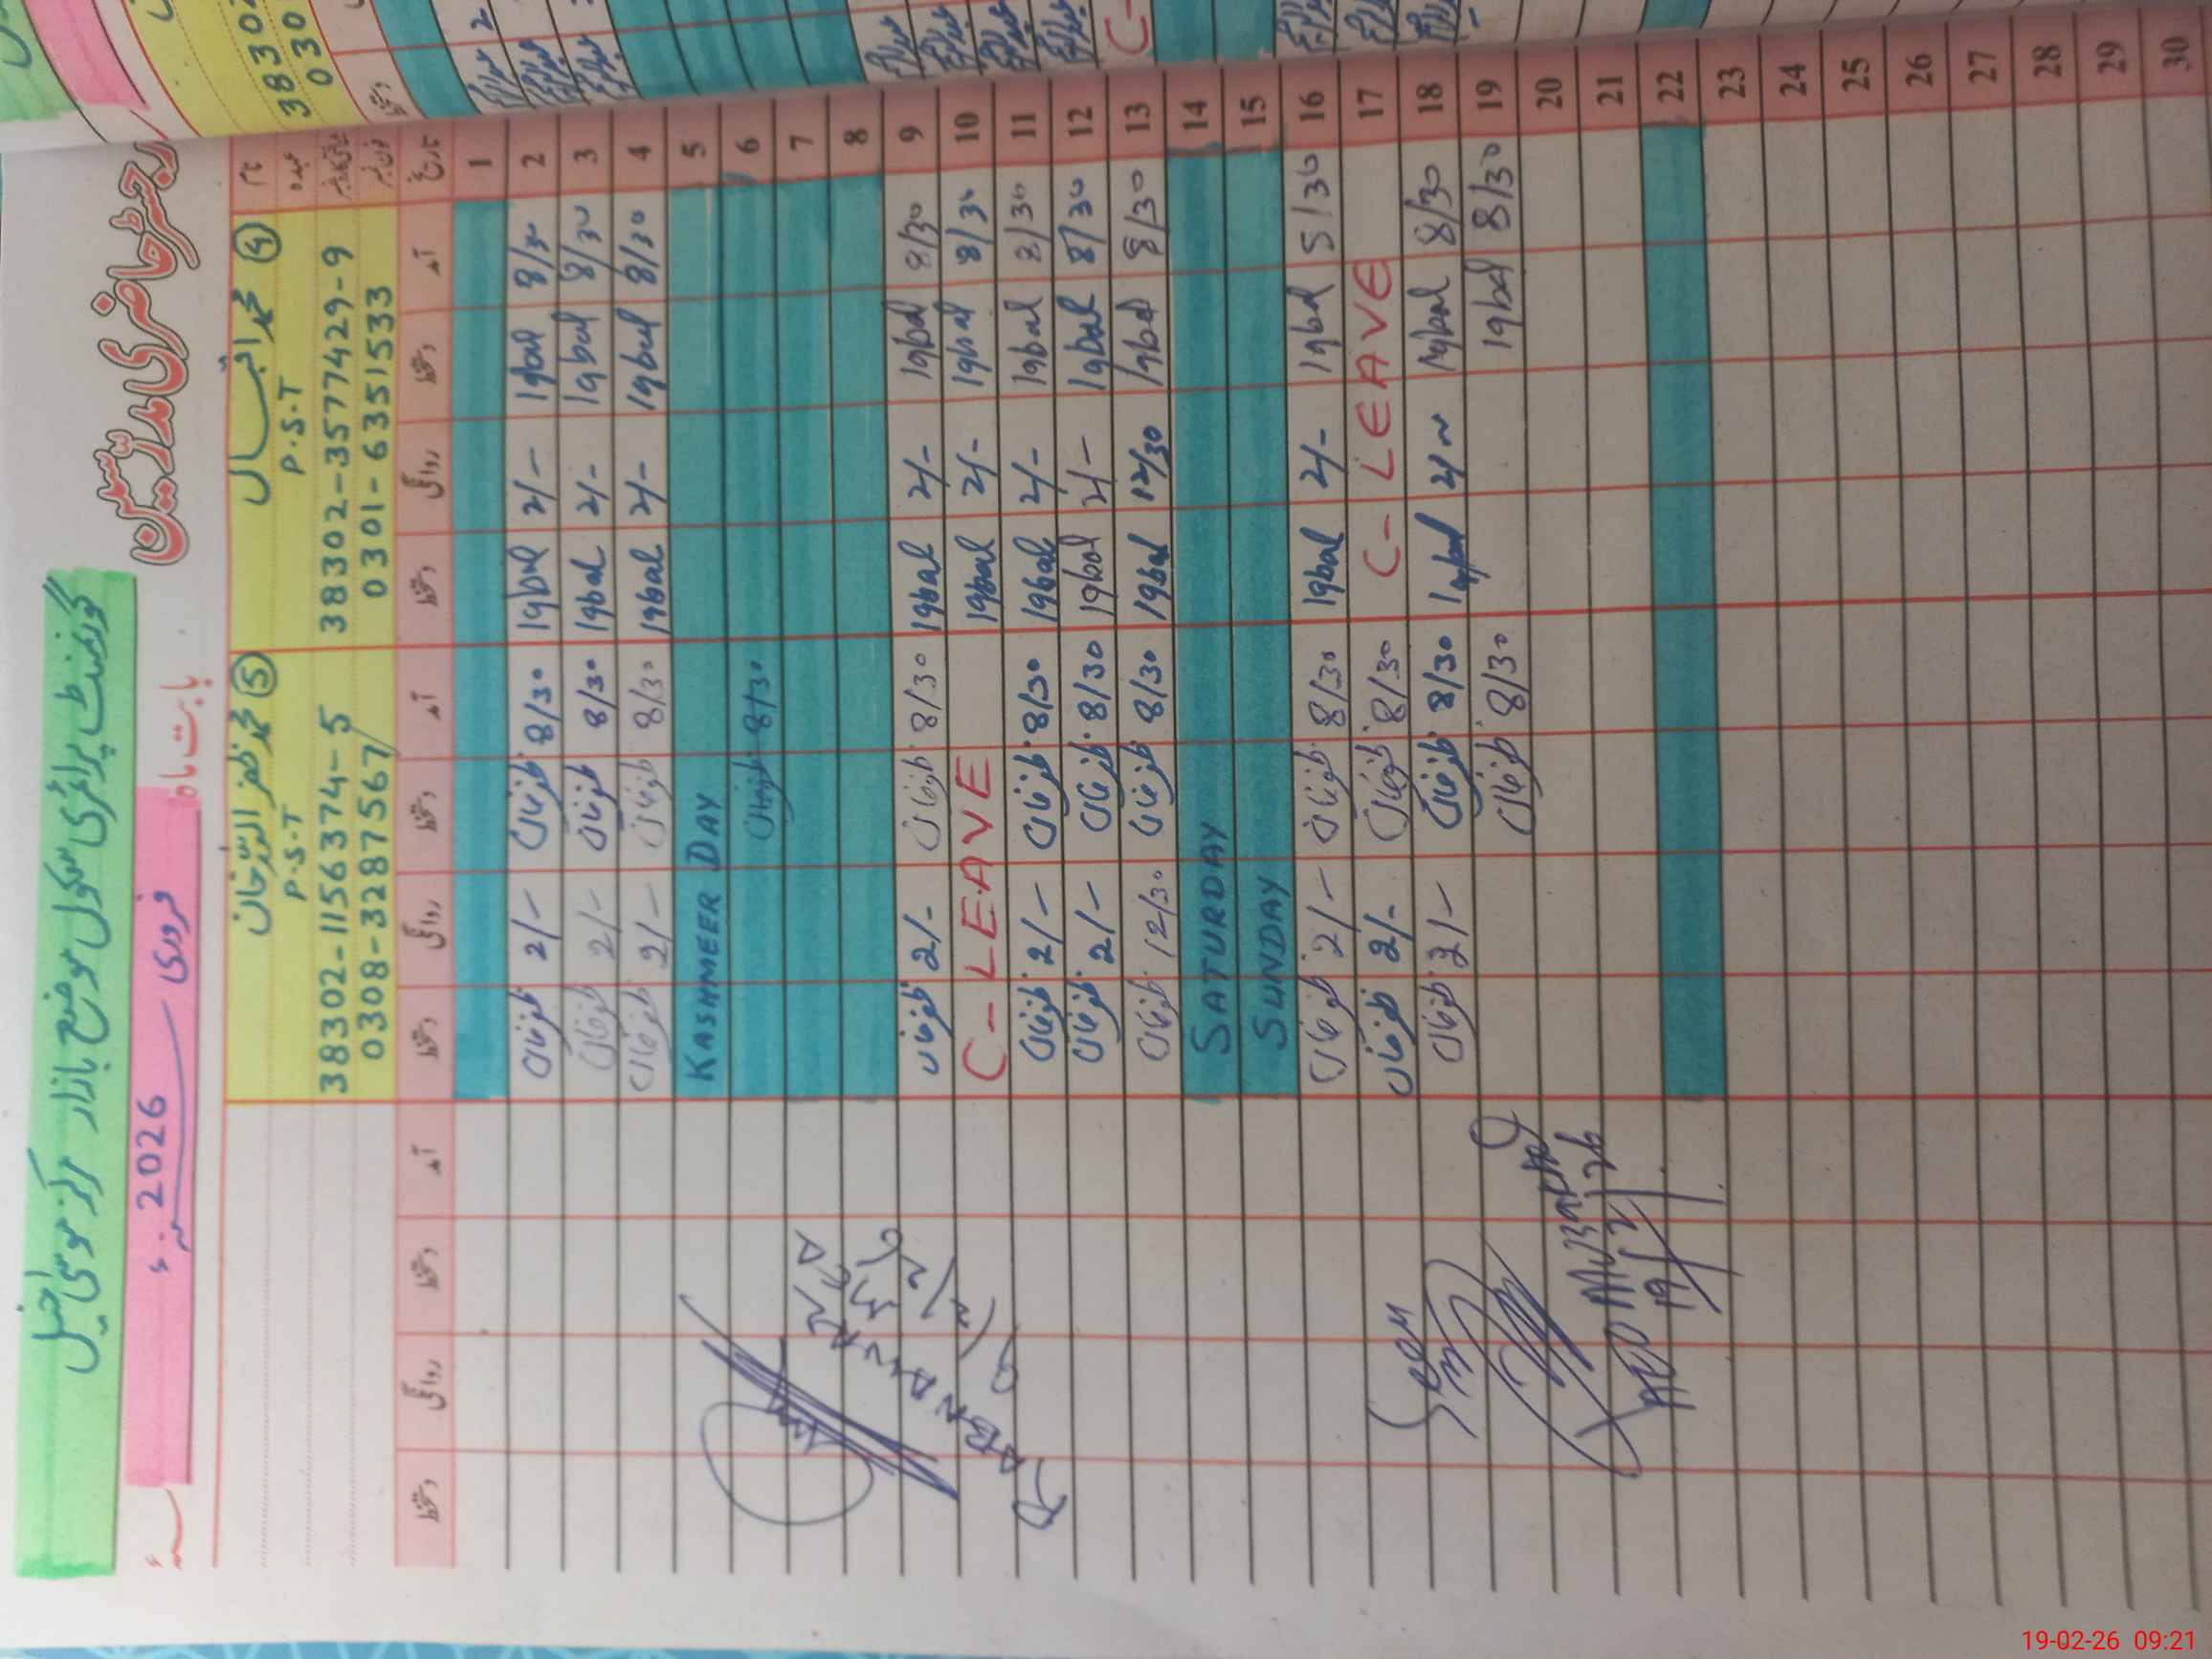 گورنمنٹ پرائمری سکول موضع بازار مرکز موسیٰ خیل
رجسٹر حاضری مدرسین بابت ماہ فروری سنہ 2026ء
نام محمد اقبال ④ محمد ظفر اللہ خان ⑤
عہدہ P.S.T P.S.T
شناختی کارڈ نمبر 38302-3577429-9 38302-1156374-5
فون نمبر 0301-6351533 0308-3287567
تاریخ آمد دستخط روانگی دستخط آمد دستخط روانگی دستخط آمد دستخط روانگی دستخط
1
2 8/30 Iqbal 2/- Iqbal 8/30 ظفر خان 2/- ظفر خان
3 8/30 Iqbal 2/- Iqbal 8/30 ظفر خان 2/- ظفر خان
4 8/30 Iqbal 2/- Iqbal 8/30 ظفر خان 2/- ظفر خان
5 KASHMEER DAY
6 8/30 ظفر خان
7
8
9 8/30 Iqbal 2/- Iqbal 8/30 ظفر خان 2/- ظفر خان
10 8/30 Iqbal 2/- Iqbal C-LEAVE
11 8/30 Iqbal 2/- Iqbal 8/30 ظفر خان 2/- ظفر خان
12 8/30 Iqbal 2/- Iqbal 8/30 ظفر خان 2/- ظفر خان
13 8/30 Iqbal 12/30 Iqbal 8/30 ظفر خان 12/30 ظفر خان
14 SATURDAY
15 SUNDAY
16 Iqbal 2/- Iqbal 8/30 ظفر خان 2/- ظفر خان
17 C-LEAVE 8/30 ظفر خان 2/- ظفر خان
18 8/30 Iqbal 2/- Iqbal 8/30 ظفر خان 2/- ظفر خان
19 8/30 Iqbal 8/30 ظفر خان
20
21
22
23
24
25
26
27
28
29
30
Seen
AEO Muzaffar
19/2/26
19-02-26 09:21